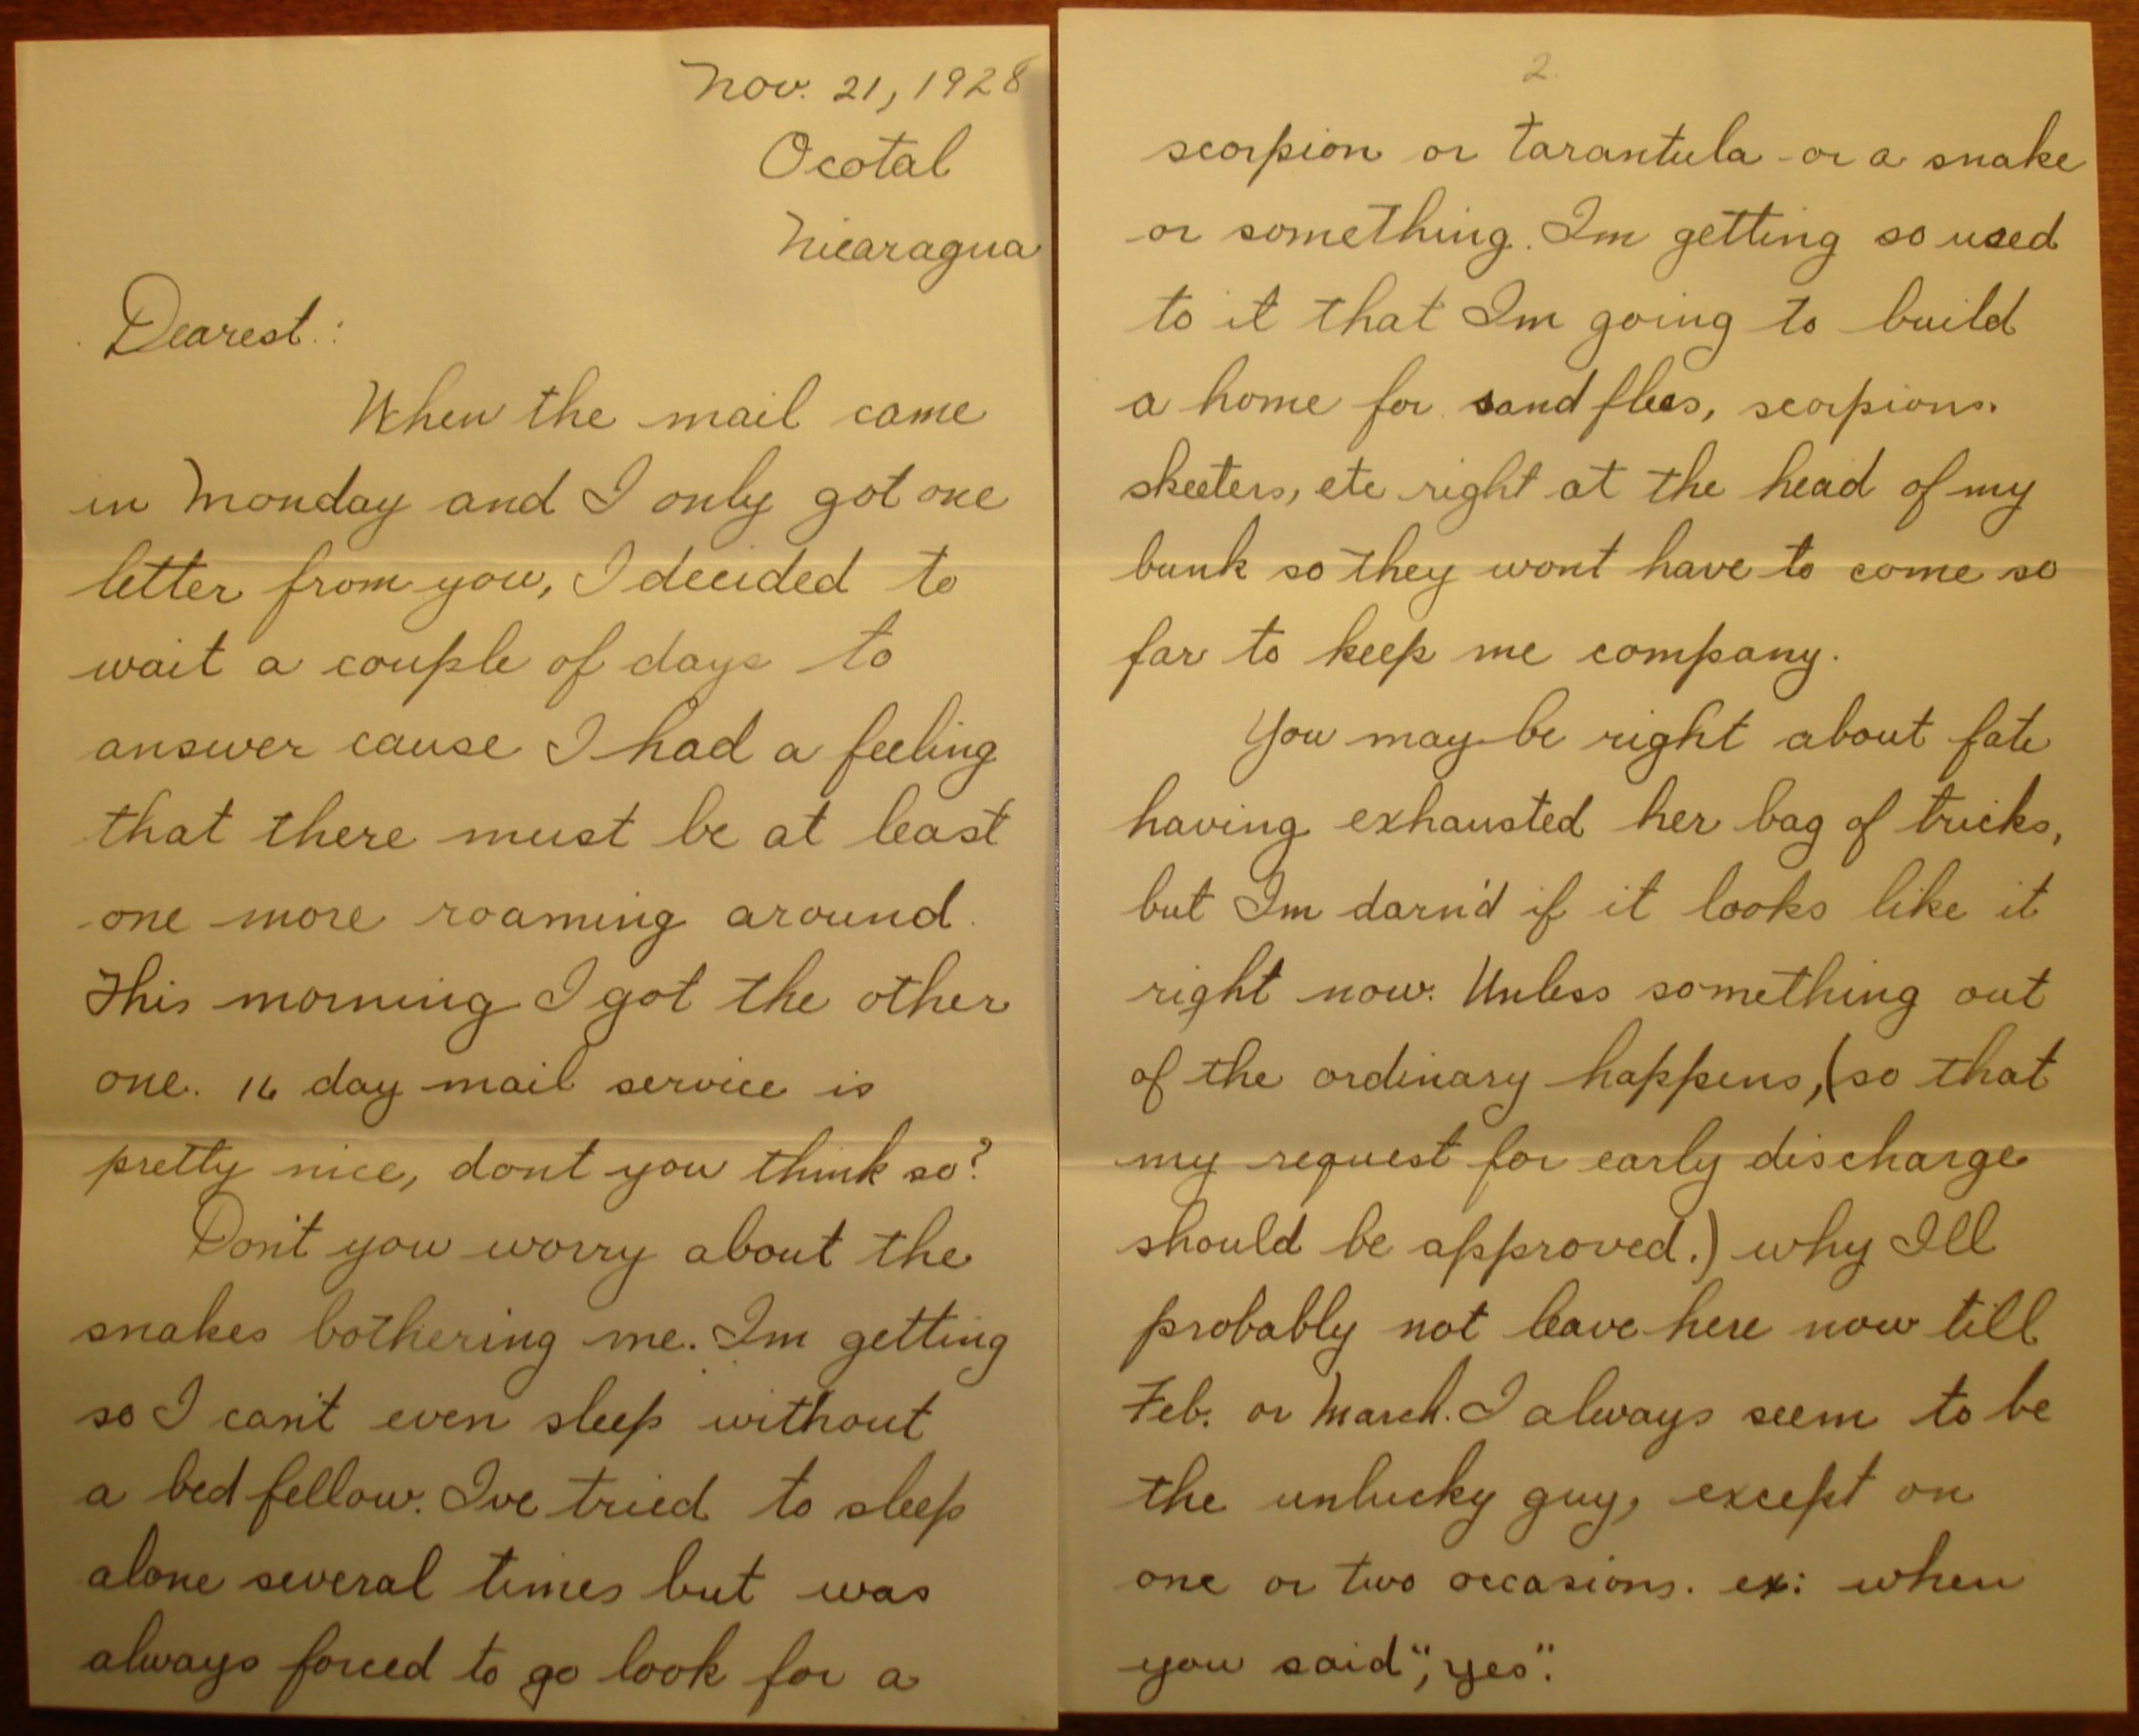 Nov. 21, 1928
Ocotal
Nicaragua
Dearest:
When the mail came
in Monday and I only got one
letter from you, I decided to
wait a couple of days to
answer cause I had a feeling
that there must be at least
one more roaming around.
This morning I got the other
one. 16 day mail service is
pretty nice, dont you think so?
Don't you worry about the
snakes bothering me. Im getting
so I can't even sleep without
a bed fellow. Ive tried to sleep
alone several times but was
always forced to go look for a
2.
scorpion or tarantula or a snake
or something. Im getting so used
to it that Im going to build
a home for sand flees, scorpions.
skeeters, etc right at the head of my
bunk so they wont have to come so
far to keep me company.
You may be right about fate
having exhausted her bag of tricks,
but Im darn'd if it looks like it
right now. Unless something out
of the ordinary happens, (so that
my request for early discharge
should be approved.) why Ill
probably not leave here now till
Feb. or March. I always seem to be
the unlucky guy, except on
one or two occasions. ex: when
you said", yes".